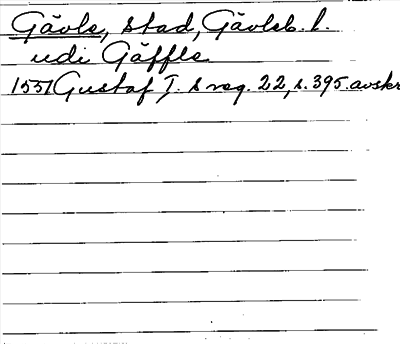 Gävle, stad, Gävleb. l.
udi Gäffle
1557 Gustaf I:s reg. 22, s. 395. avskr